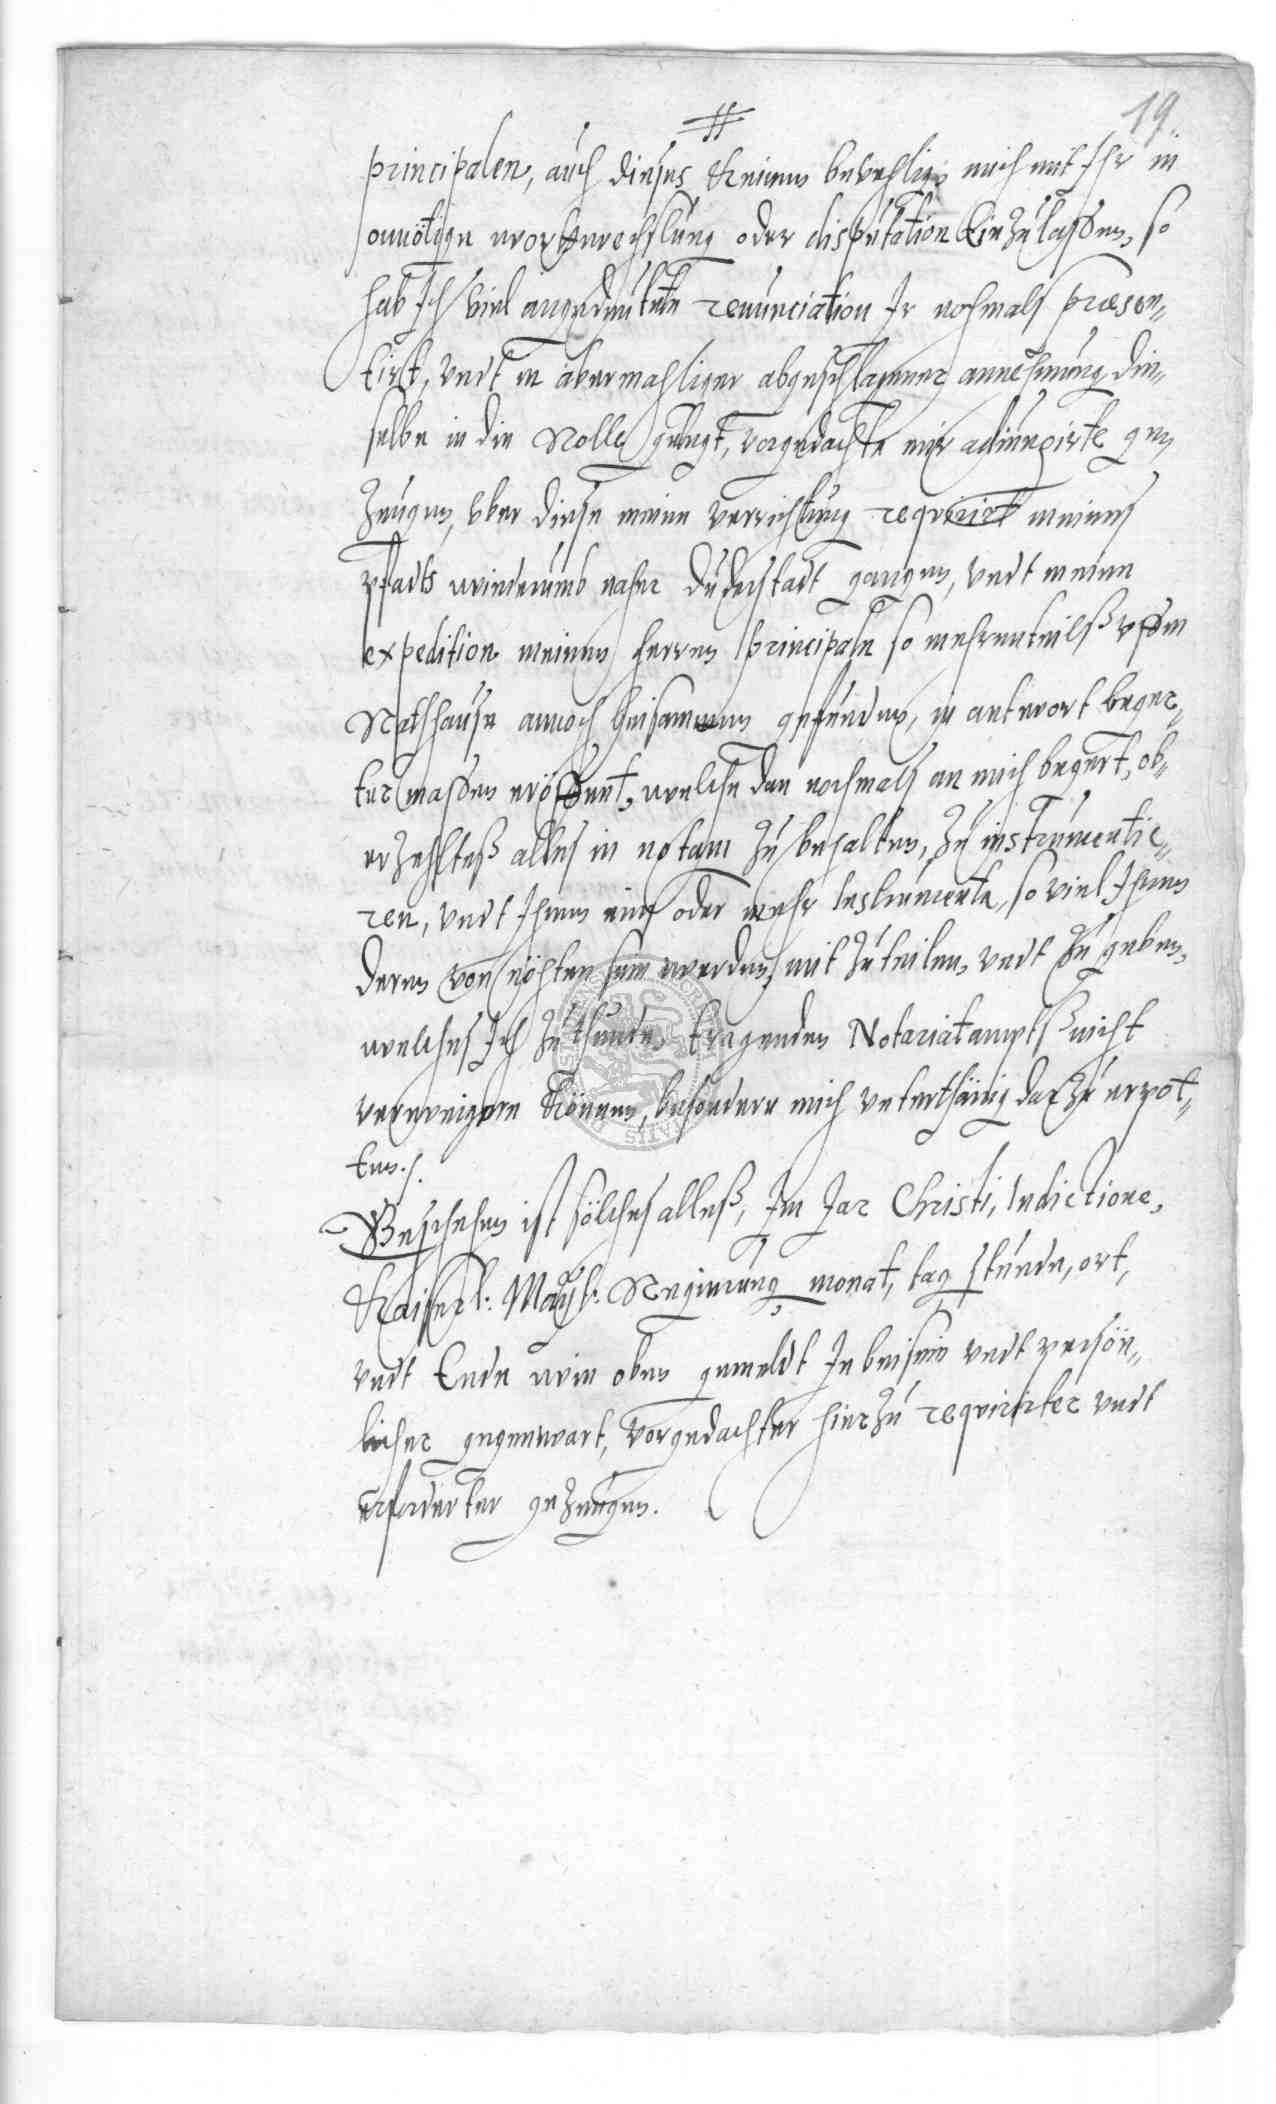 19.
principalen, auch dieses keinen bevehlig, mich mit Ihr in
onnötige wortwechslung oder disputation Einzulaßen, so
hab Ich viel angedeutete renunciation Ir nochmals præsen„
tirt, undt in abermahliger abgeschlagener annehmung die„
selbe in die Rolle gelegt, vorgedachte mir adiungirte ge„
zeugen, uber diese meine verrichtung requirirt meines
pfadts wiederumb naher Duderstadt gangen, undt meine
expedition meinen herren principaln so mehrenteilß ufdem
Rathhause annoch beisammen gefunden, in antwort beger„
ter maßen eröffent, welche dan nochmals an mich begert, ob„
erzehlteß alles in notam zu behalten, zu instrumentie„
ren, undt Ihnen eins oder mehr Instrumenta, so viel Ihnen
deren von nöhten sein werden, mit zuteilen, undt zu geben,
welches Ich zuthunde, tragenden Notariatampts nicht
verweigern können, besondern mich unterthänig darzu erpot„
ten./.
Geschehen ist sölches alleß, Im Jar Christi, Indictione,
Kaiserl: Mayt: Regierung monat, tag stunde, ort,
undt Ende wie oben gemeldt In beisein undt persön„
licher gegenwart, vorgedachter hierzu requirirter undt
erforderter gezeugen.